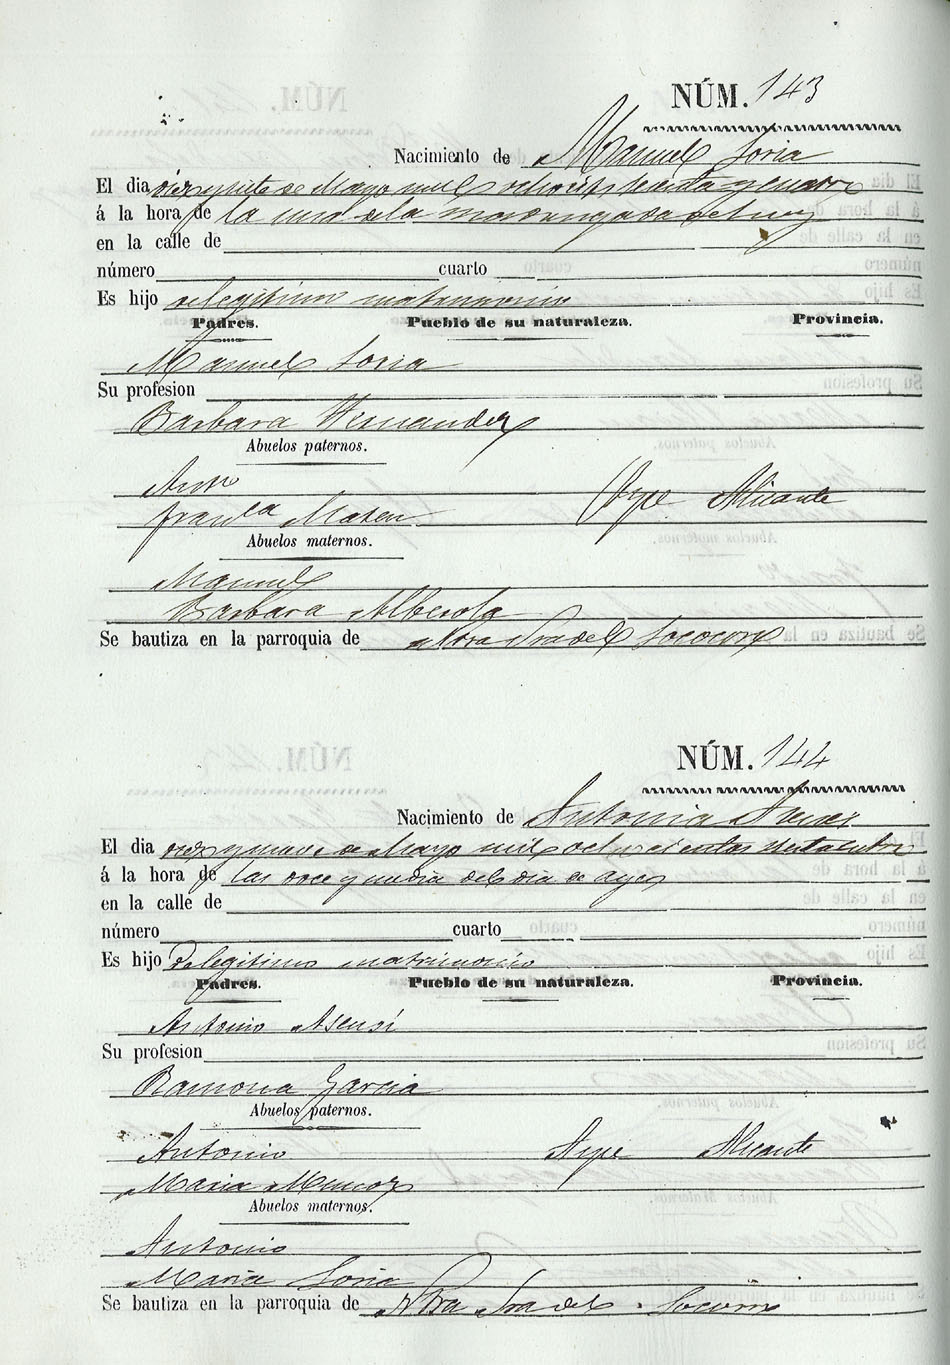 NÚM. 143
Nacimiento de Manuel Soria
El dia diez y siete de Mayo mil ochocientos setenta y cuatro
á la hora de la una de la madrugada de hoy
en la calle de
número cuarto
Es hijo de legitimo matrimonio
Padres. Pueblo de su naturaleza. Provincia.
Manuel Soria
Su profesion
Barbara Hernandez
Abuelos paternos.
Anto
Franca Mateu Aspe Alicante
Abuelos maternos.
Manuel
Barbara Alberola
Se bautiza en la parroquia de Ntra Sra del Socorro
NÚM. 144
Nacimiento de Antonia Asensi
El dia diez y nueve de Mayo mil ochocientos setenta cuatro
á la hora de las doce y media del dia de ayer
en la calle de
número cuarto
Es hijo de legitimo matrimonio
Padres. Pueblo de su naturaleza. Provincia.
Antonio Asensi
Su profesion
Ramona Garcia
Abuelos paternos.
Antonio Aspe Alicante
Maria Munoz
Abuelos maternos.
Antonio
Maria Soria
Se bautiza en la parroquia de Ntra Sra del Socorro